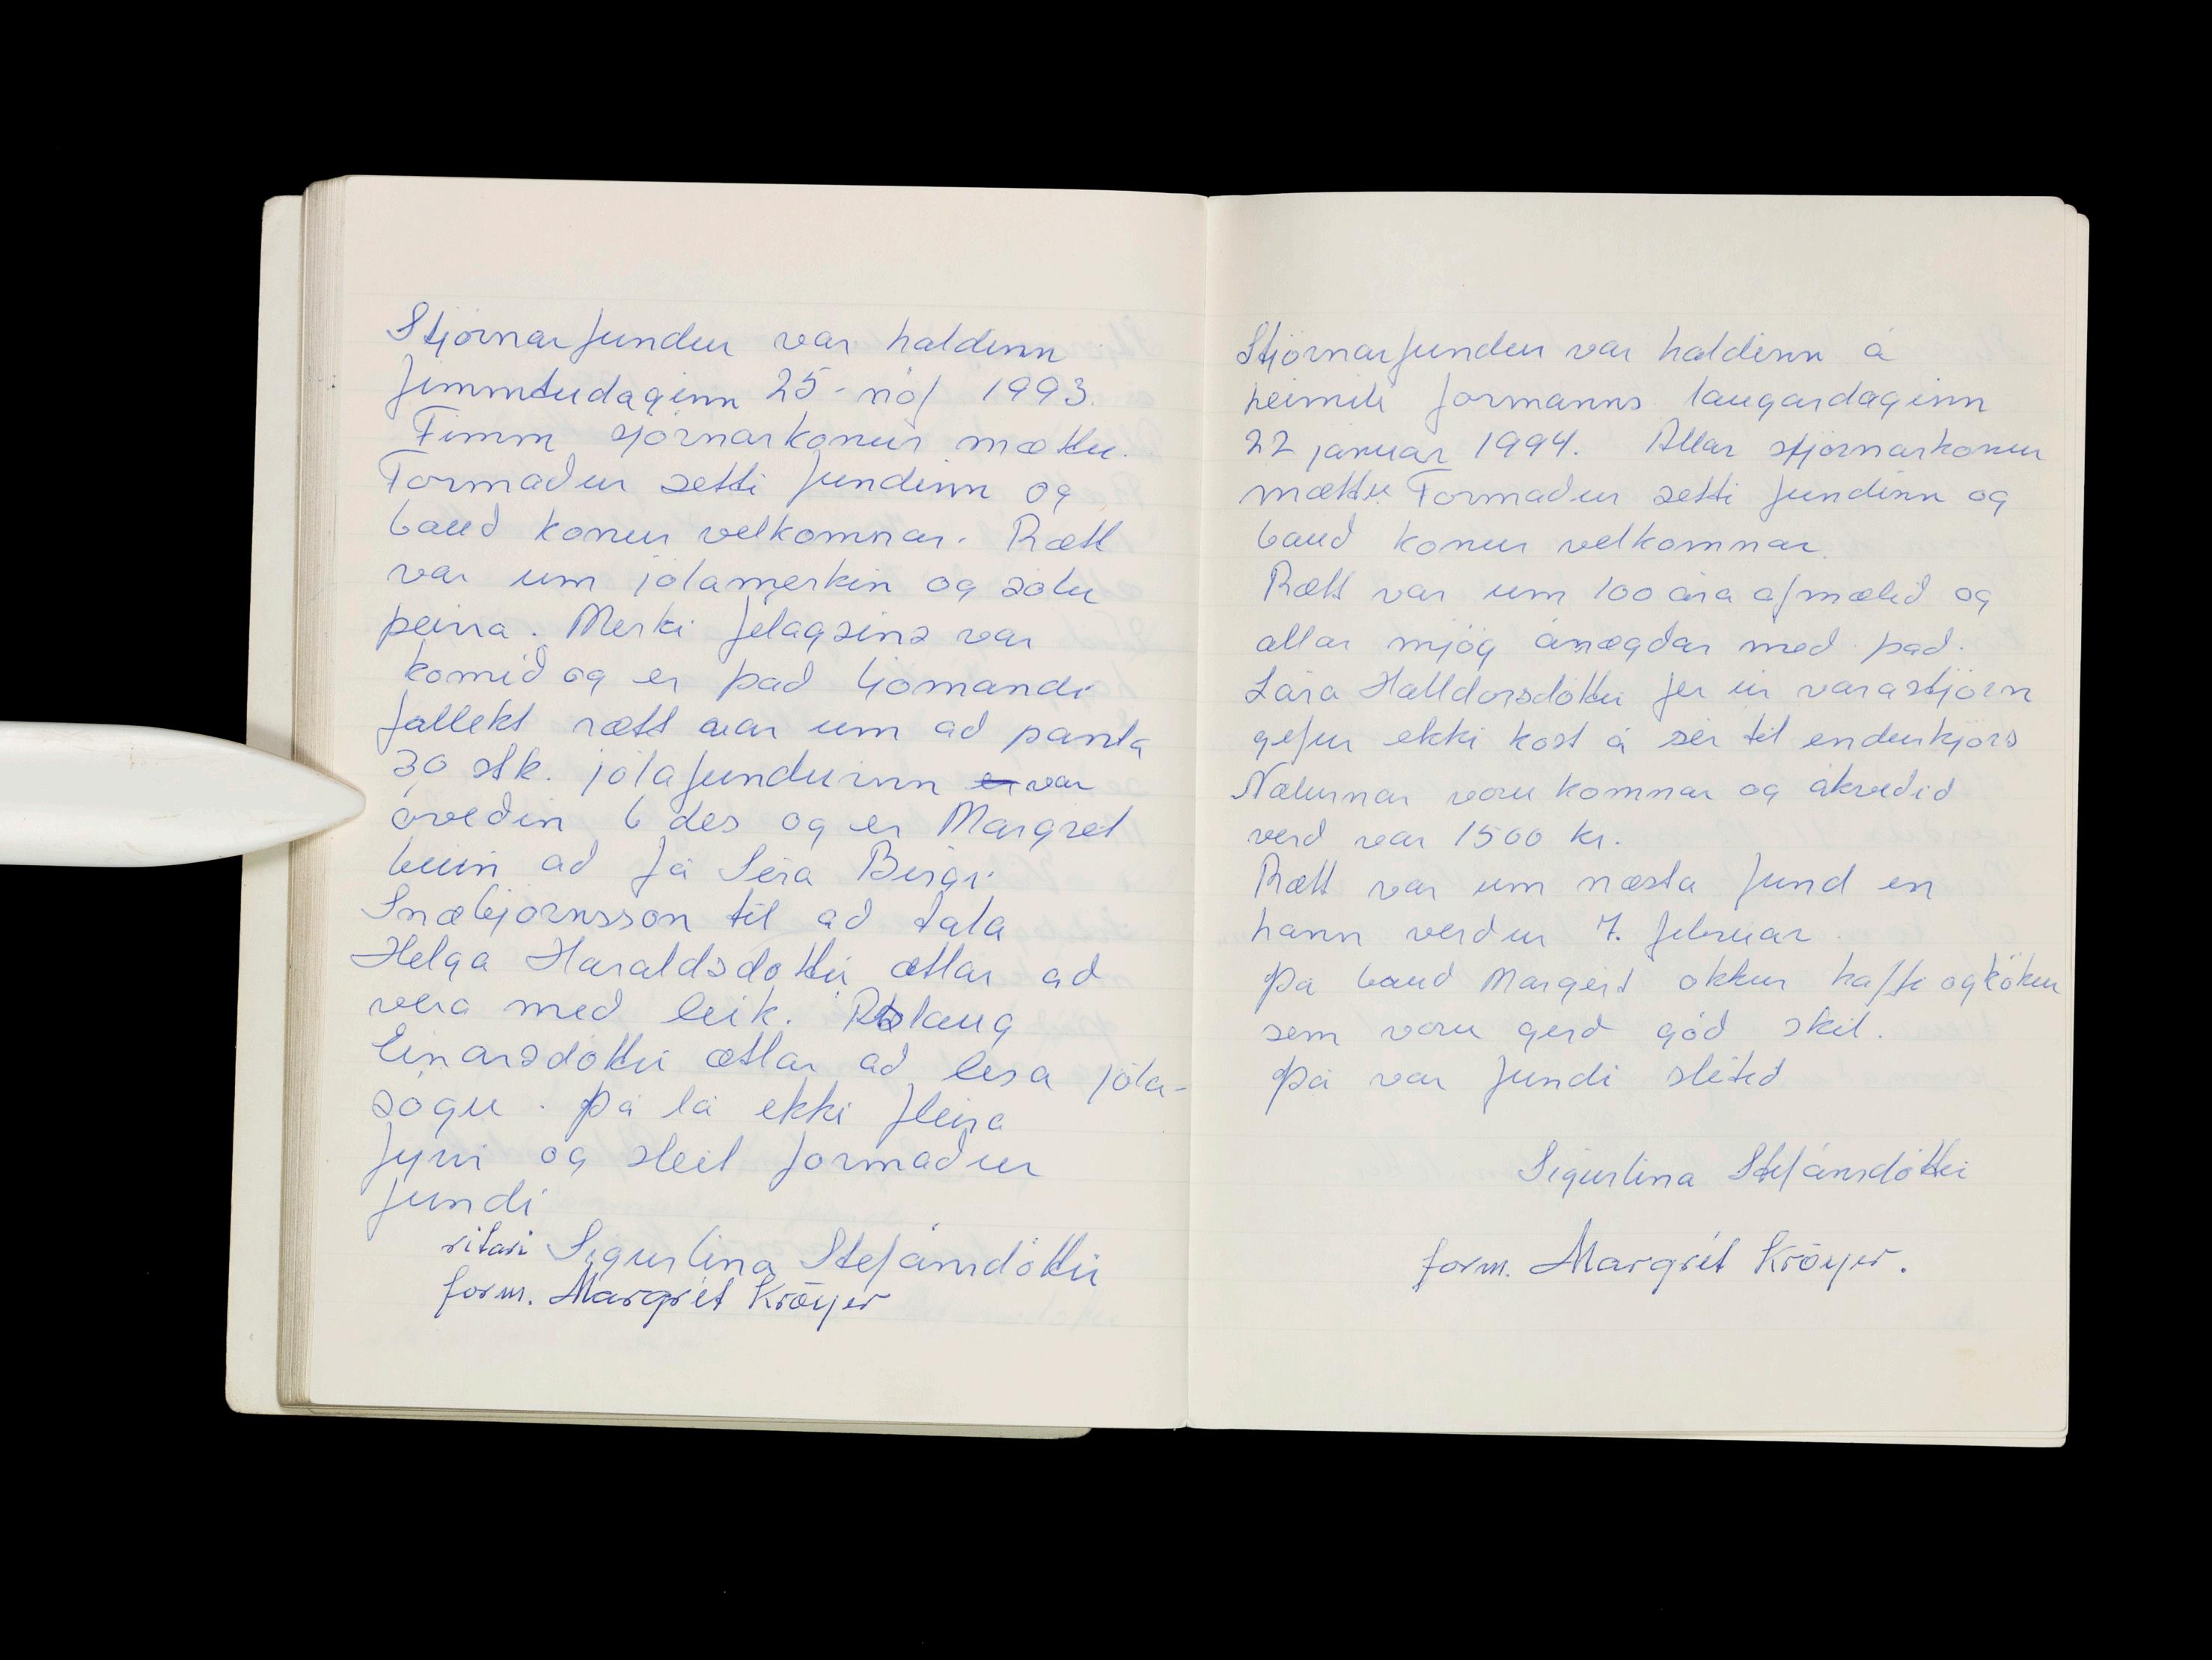 Stjórnarfundur var haldinn
fimmtudaginn 25-nóf 1993.
Fimm sjórnarkonur mættu.
Formaður setti fundinn og
bauð konur velkomnar. Rætt
var um jólamerkin og sölu
þeirra. Merki félagsins var
komið og er það ljómandi
fallekt rætt var um að panta
30 stk. jólafundurinn er var
óveðin 6 des og er Margret
búin að fá Séra Birgi
Snæbjörnsson til að tala
Helga Haraldsdóttir ætlar að
vera með leik. laug
Einarsdóttir ætlar að lesa jóla-
sögu. Þá lá ekki fleira
fyrir og sleit formaður
fundi
ritari Sigurlína Stefánsdóttir
form. Margrét Kröyer
Stjórnarfundur var haldinn á
heimili formanns laugardaginn
22 januar 1994. Allar stjórnarkonur
mættu. Formaður setti fundinn og
bauð konur velkomnar.
Rætt var um 100 ára afmælið og
allar mjög ánægðar með það.
Lára Halldorsdóttir fer úr varastjórn
gefur ekki kost á sér til endurkjörs
Nælurnar voru komnar og ákvedið
verð var 1500 kr.
Rætt var um næsta fund en
hann verður 7. februar.
Þá bauð Margért okkur kaffi og kökur
sem voru gerð góð skil.
Þá var fundi slitið
Sigurlína Stefánsdóttir
form. Margrét Kröyer.